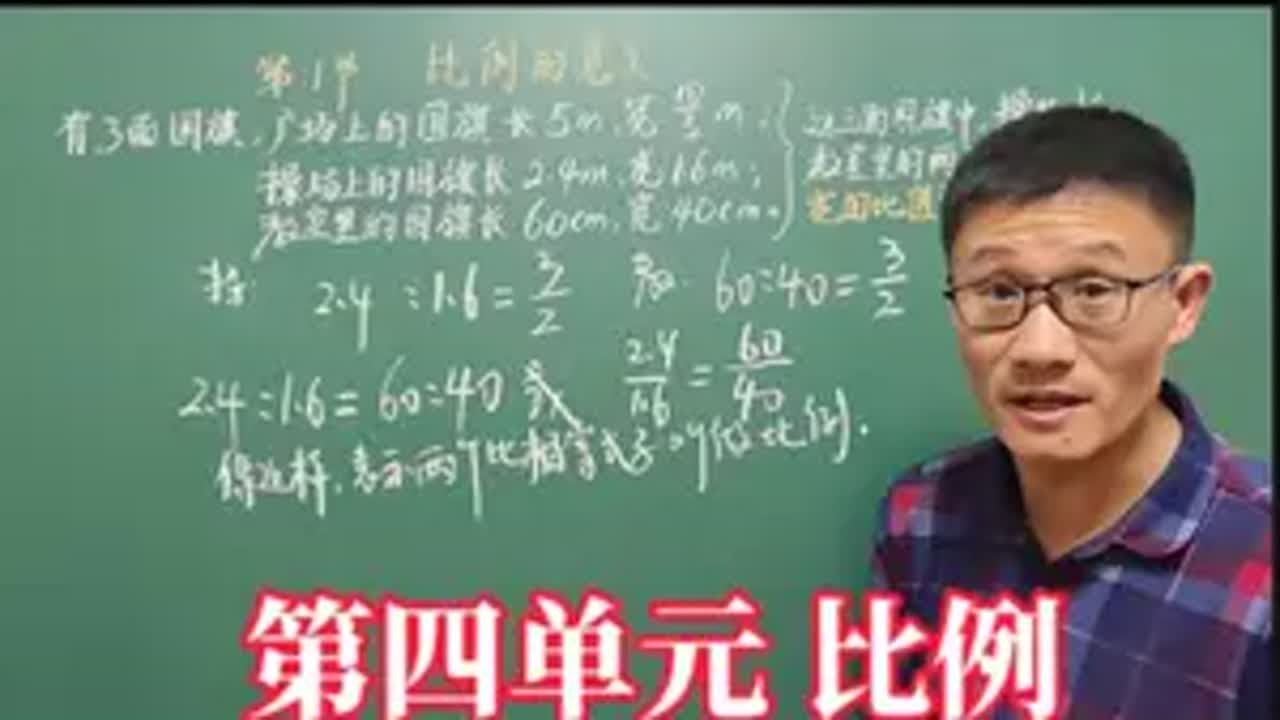 第1节 比例的意义
有3面国旗,广场上的国旗长5m,宽 m,
操场上的国旗长2.4m,宽1.6m;
教室里的国旗长60cm,宽40cm。
这三面国旗中,操场
教室里的两
宽的比值
操: 2.4:1.6=3/2 教: 60:40=3/2
2.4:1.6=60:40 2.4/1.6=60/40
像这样,表示两个比相等式子叫做比例.
第四单元 比例